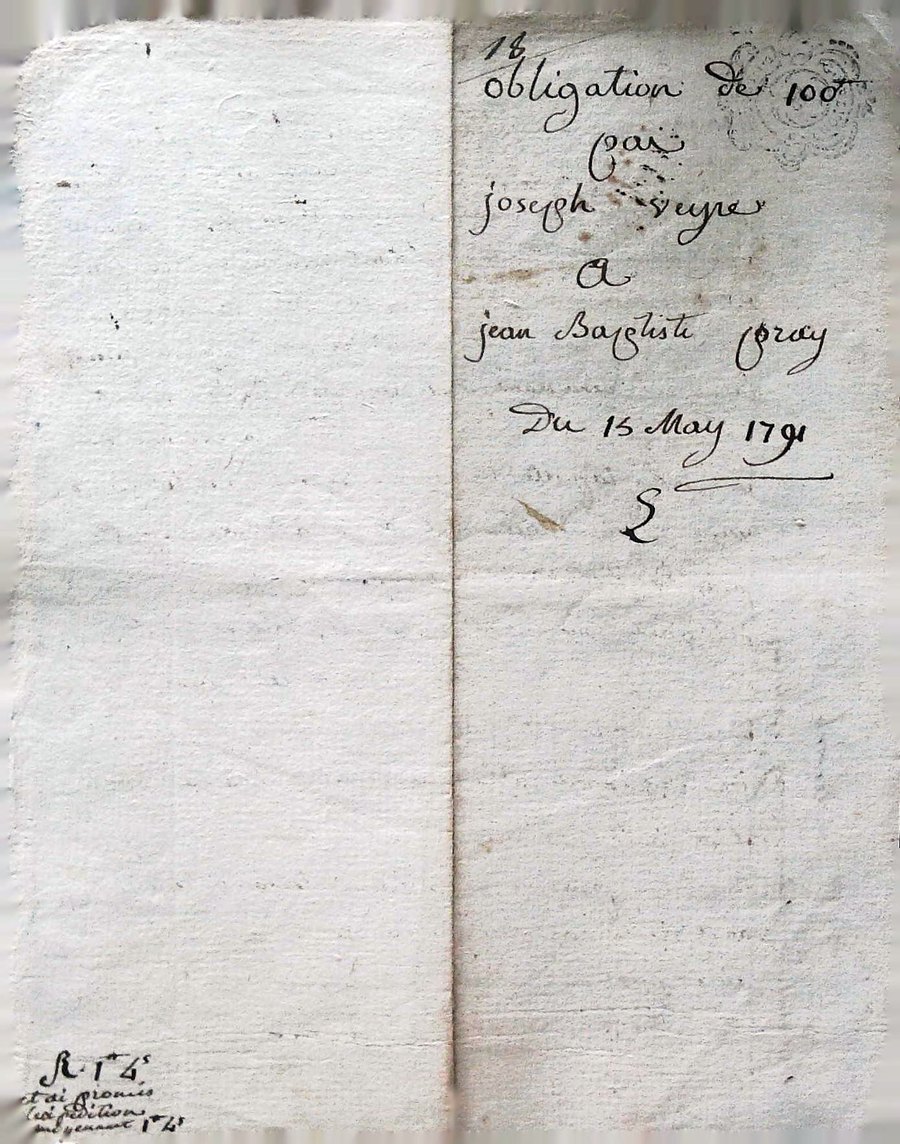 18
obligation de 100ᵗᵗ
par
joseph veyre
a
jean Baptiste pray
Du 15 May 1791
R. 1ᵗᵗ 4ˢ
et ai promis
lexpedition
moyenant 1ᵗᵗ 4ˢ